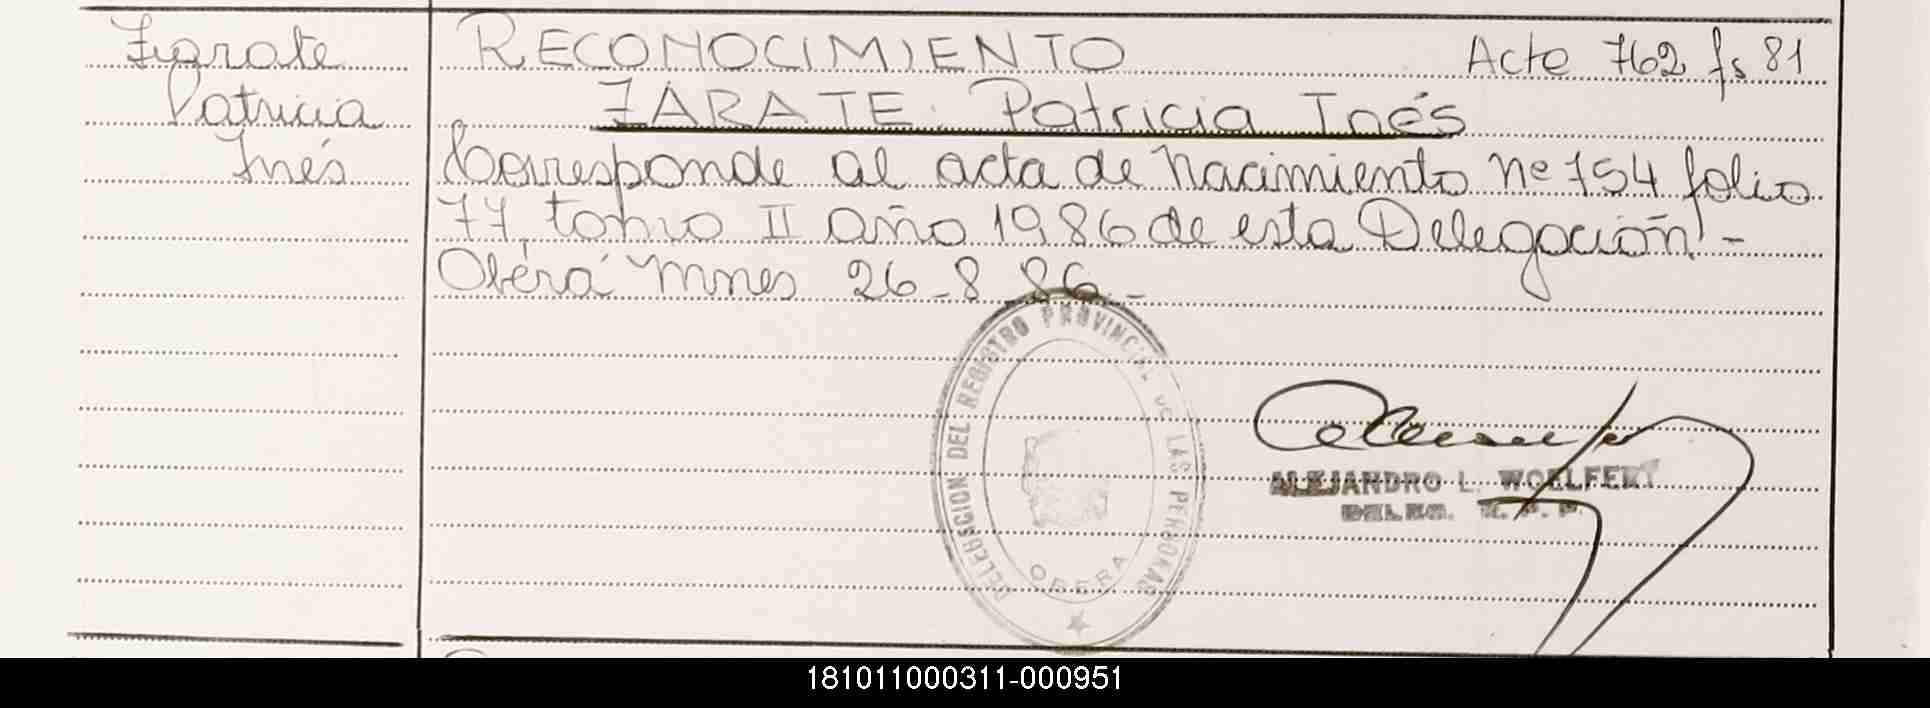 Zarate
Patricia
Inés
RECONOCIMIENTO Acta 762 fs 81
ZÁRATE: Patricia Inés
Corresponde al acta de Nacimiento Nº 754 folio
77, tomo II año 1986 de esta Delegación. -
Oberá Mnes 26-8-86.-
DELEGACION DEL REGISTRO PROVINCIAL DE LAS PERSONAS
OBERA
ALEJANDRO L. WOELFERT
DELEG. R. P. P.
181011000311-000951